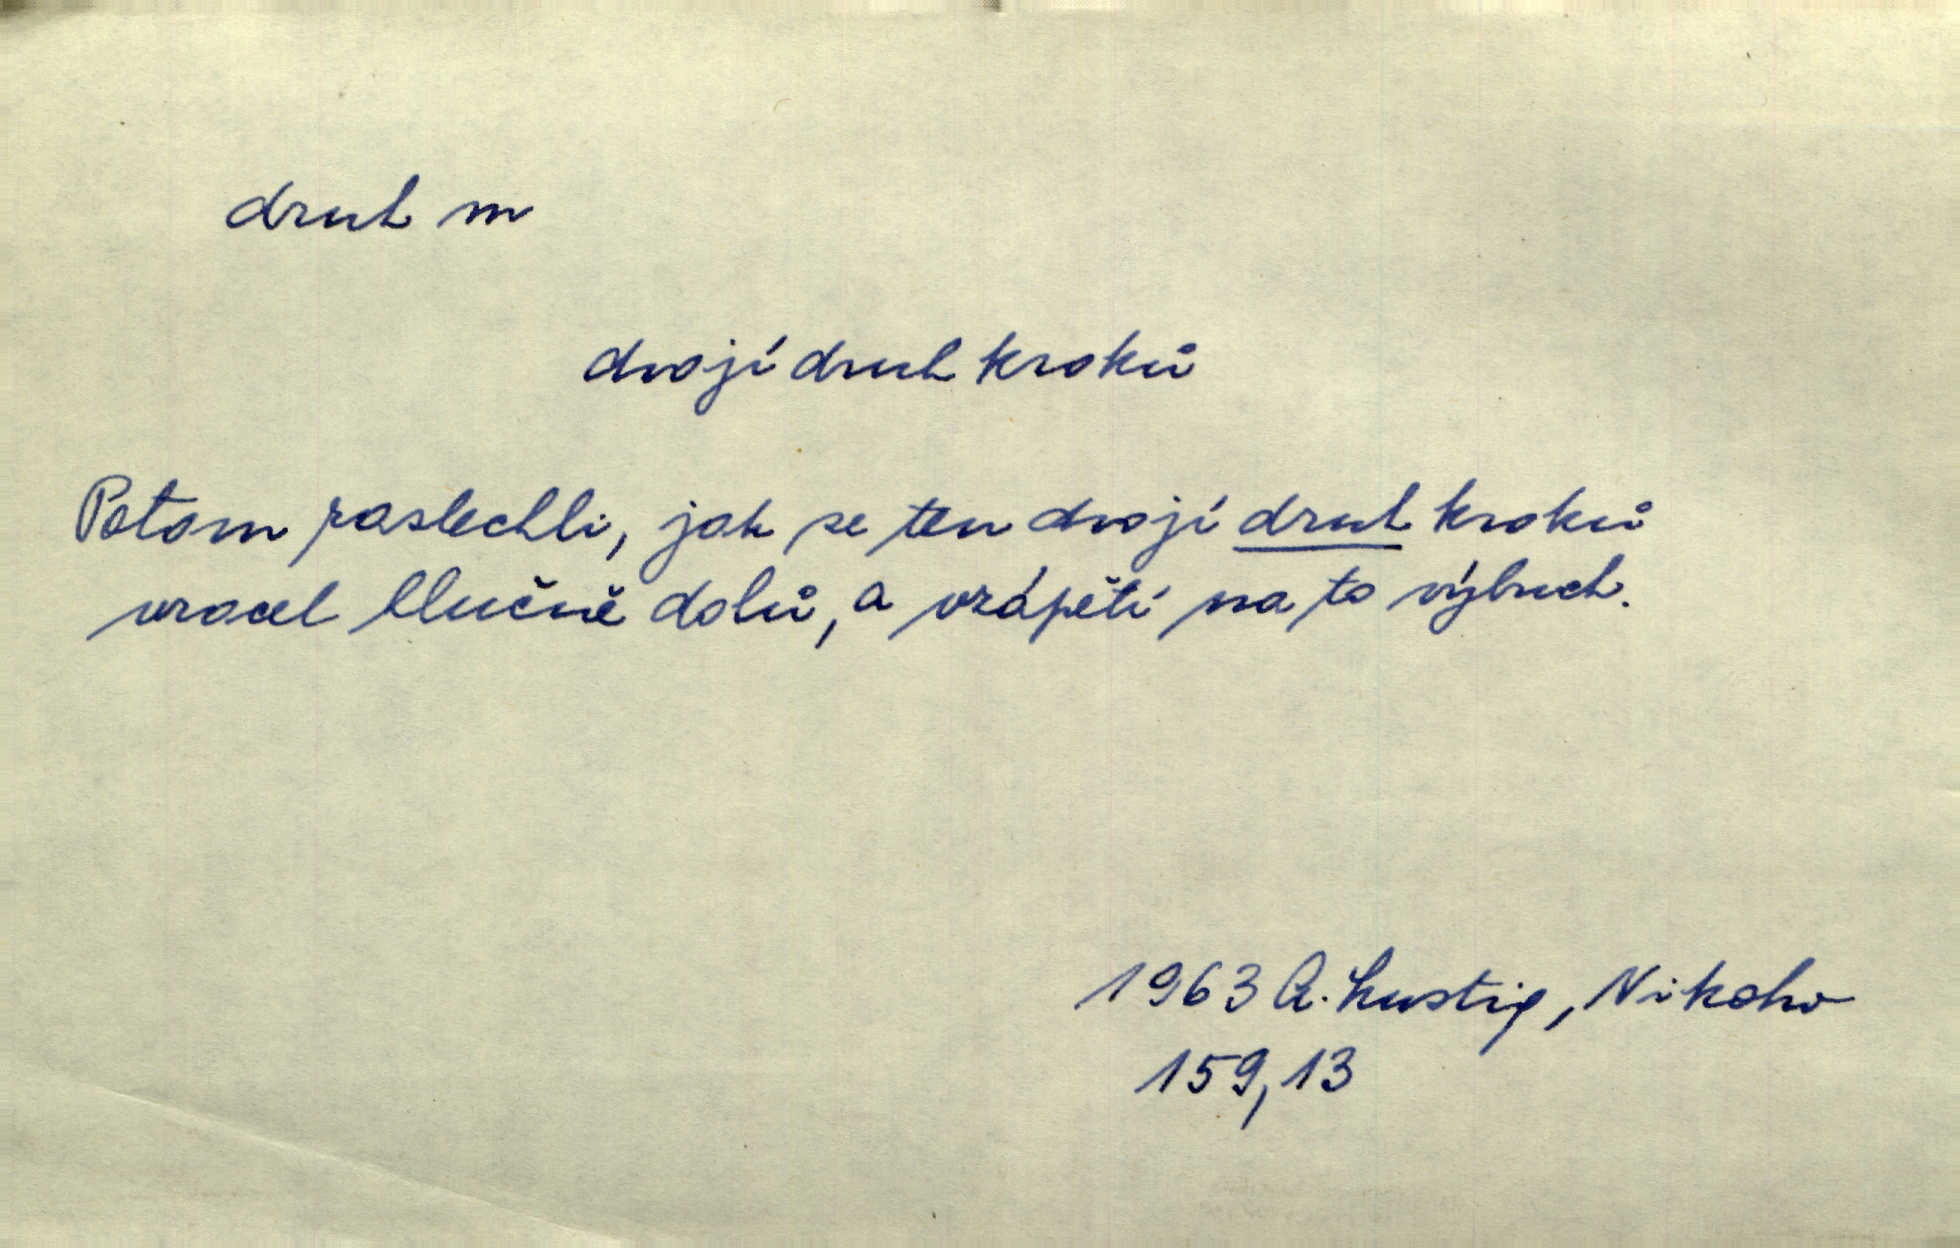 druh m
dvojí druh kroků
Potom zaslechli, jak se ten dvojí druh kroků
vracel hlučně dolů, a vzápětí na to výbuch.
1963 A. Lustig, Nikoho
159,13